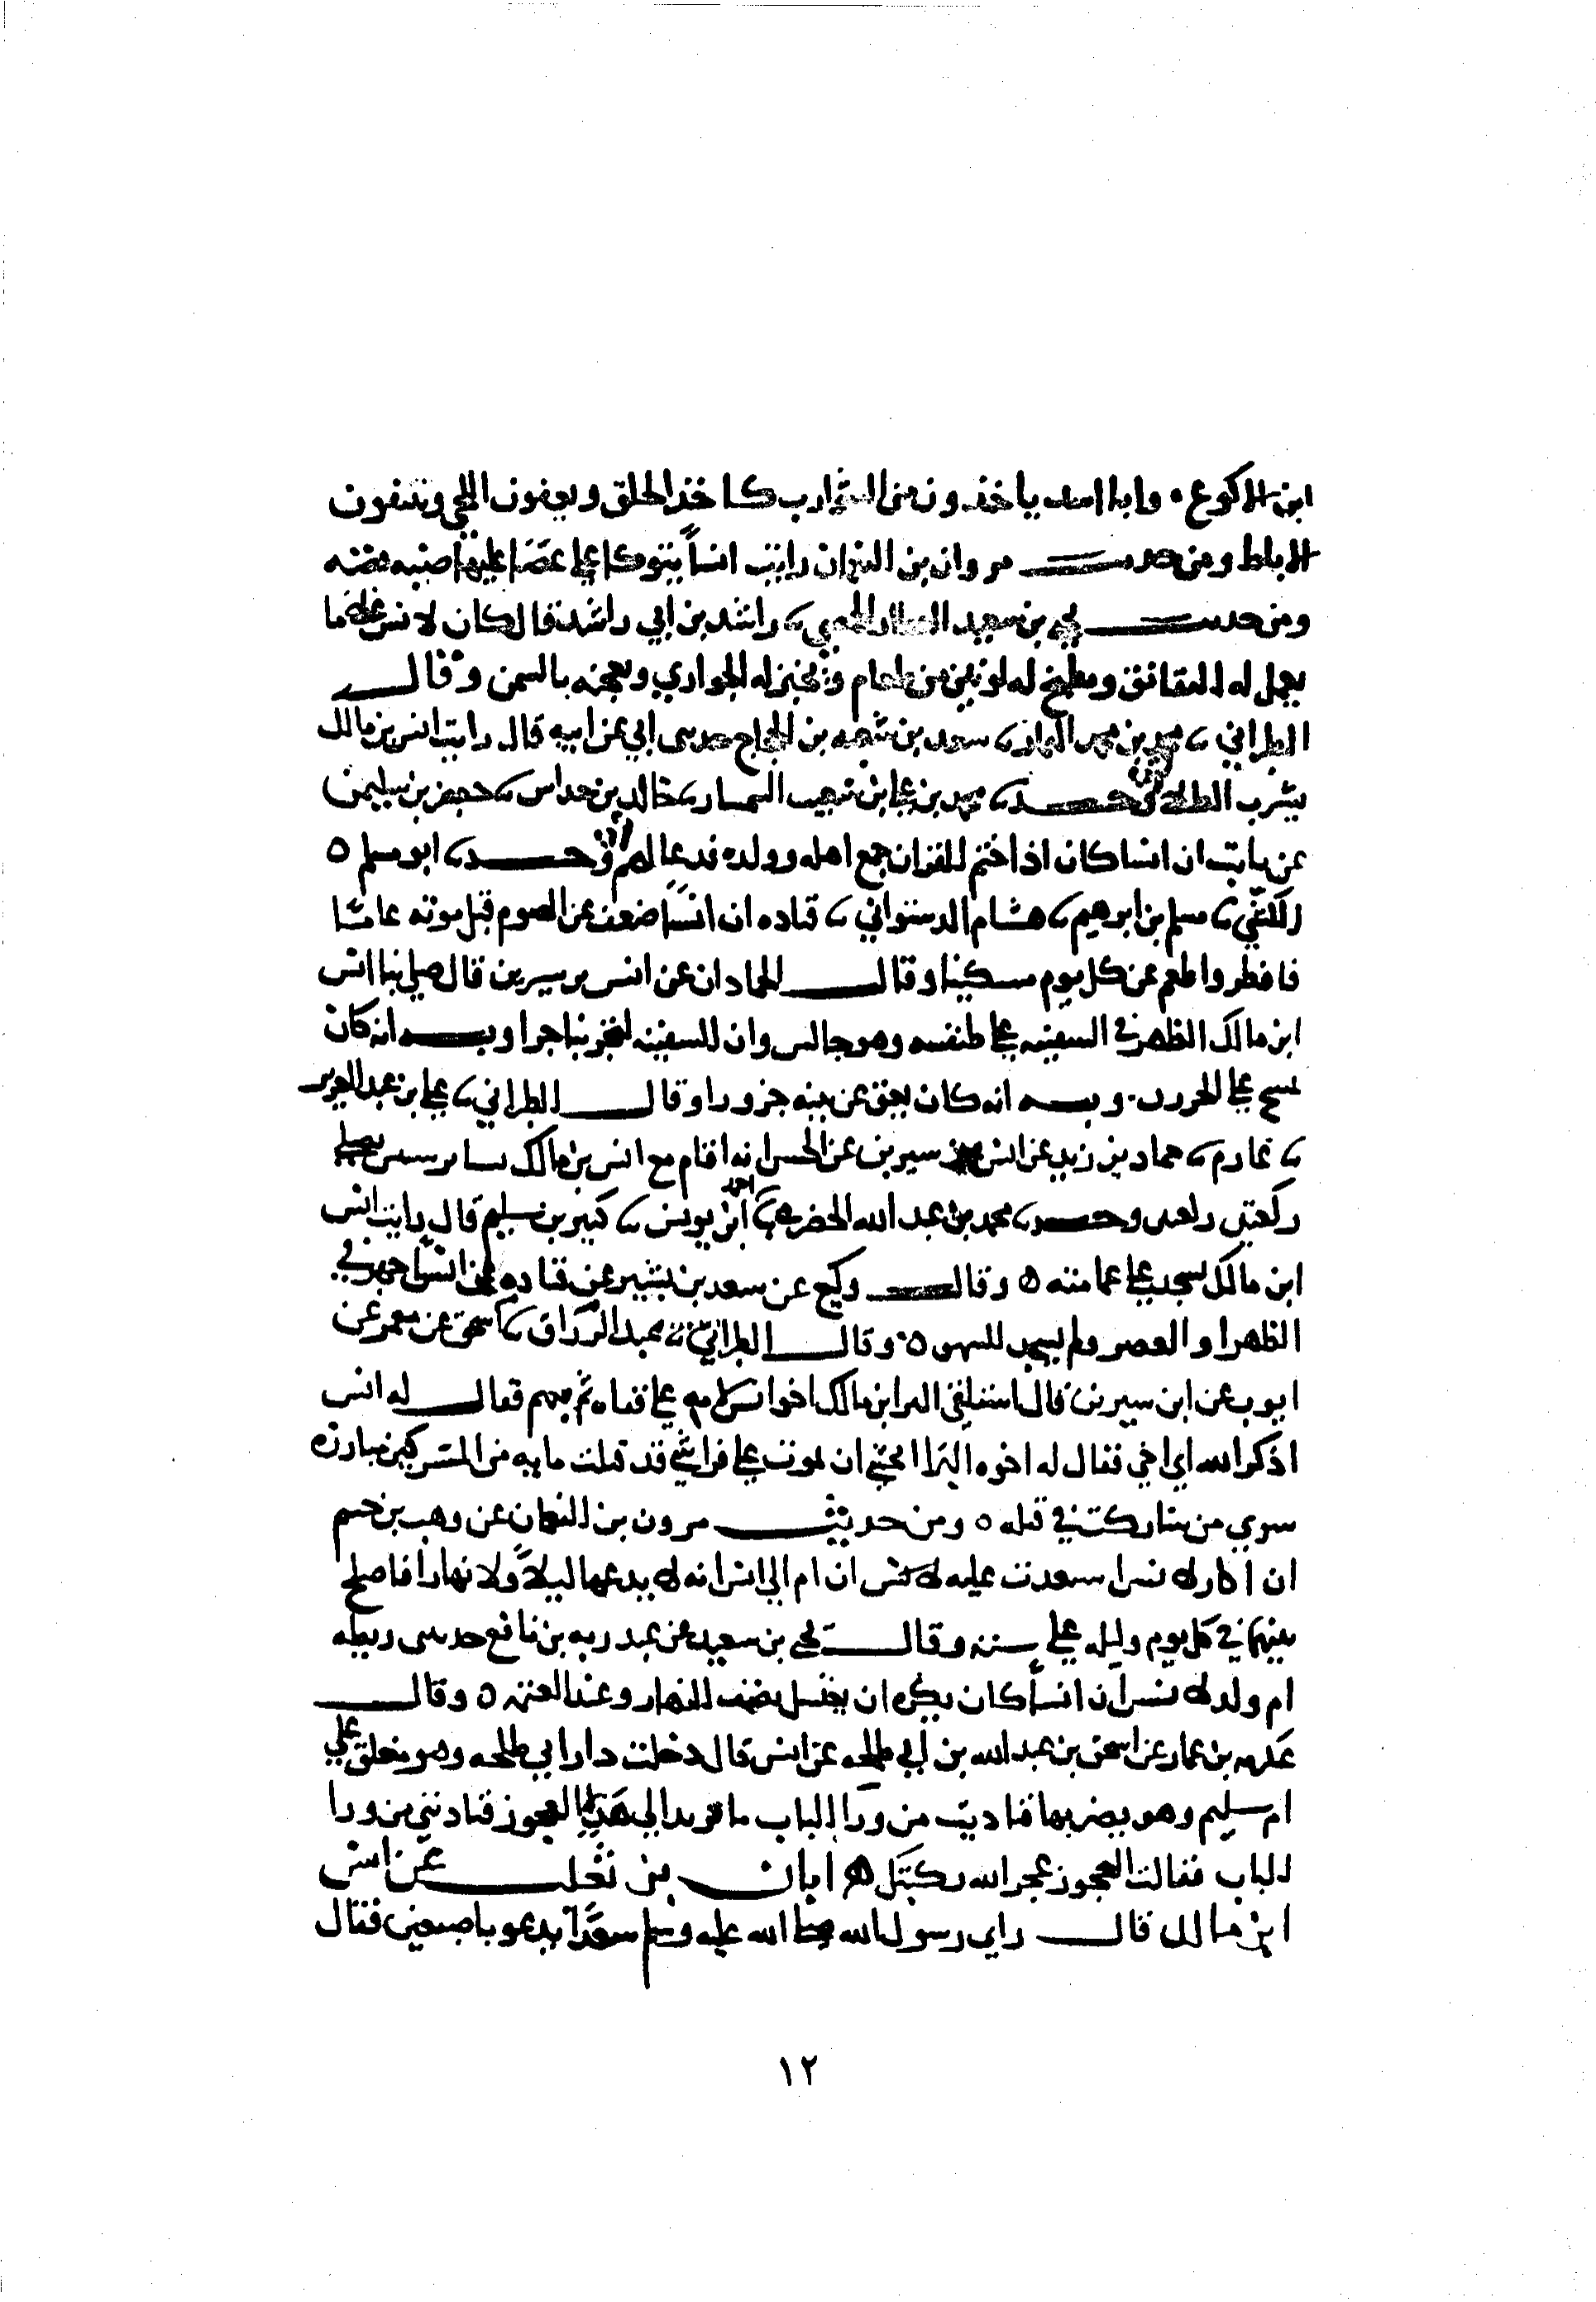 ابن الاكوع وابا اسيد ياخذون من الشوارب كاخذ الحلق ويعفون اللحي وينتفون
الاباط ومن حديث مروان بن النعمان رايت انسا يتوكا علي عصا عليها ضبه فضه
ومن حديث يحيي بن سعيد العطار الحمصي راشد بن ابي راشد قال كان لانس غلام
يعمل له النقانق ويطبخ له لونين من طعام ويخبز له الحواري ويعجنه بالسمن وقال
الطبراني محمد بن سعيد بن شعبه بن الحجاج حدثني ابي عن ابيه قال رايت انس بن مالك
يشرب الطلا محمد بن علي بن شعيب السمسار خالد بن خداش جعفر بن سليمن
عن ثابت ان انسا كان اذا ختم القران جمع اهله وولده فدعا لهم وحدثنا ابو مسلم
الكشي مسلم بن ابرهيم هشام الدستواني قتاده ان انسا ضعف عن الصوم قبل موته عاما
فافطر واطعم عن كل يوم مسكينا وقال الحمادان عن انس بن سيرين قال صلي بنا انس
ابن مالك الظهر في السفينه علي طنفسه وهو جالس وان السفينه لتجر بنا جرا وبه انه كان
يمسح علي الجوربين وبه انه كان يعق عن بنيه جزورا وقال الطبراني علي بن عبد العزيز
عارم حماد بن زيد عن انس بن سيرين عن الحسن انه اقام مع انس بن مالك بنيسابور سنتين يصلي
ركعتين ركعتين وحدثنا محمد بن عبد الله الحضرمي احمد ابن يونس كبير بن سليم قال رايت انس
ابن مالك يسجد علي عمامته وقال وكيع عن سعد بن بشير عن قتاده عن انس جهر في
الظهر او العصر ولم يسجد للسهو وقال الطبراني عبد الرزاق اسحق عن معمر عن
ايوب عن ابن سيرين قال استلقي البرا ابن مالك اخو انس لامه علي قفاه ثم ترنم فقال له انس
اذكر الله اي اخي فقال له اخوه البرا اتخشي ان اموت علي فراشي قد قتلت مايه من المشركين مبارزه
سوي من شاركت في قتله ومن حديث مرون بن النعمان عن وهب بن
ان اكار لانس استعدت عليه لانس ان ام الي انس انه لا يدعها ليلا ولا نهارا فاصلح
بينهما في كل يوم وليله علي سته وقال يحيي بن سعيد عن عبد ربه بن نافع حدثتني ربطه
ام ولد لانس ان انسا كان يكره ان يغتسل نصف النهار وعند العتمه وقال
عكرمه بن عمار عن اسحق بن عبد الله بن ابي طلحه عن انس قال دخلت دار ابي طلحه وهو مغلق علي
ام سليم وهو يضربها فناديت من ورا الباب ما تريد الي هذه العجوز فنادتني من ورا
الباب فقالت العجوز عجز الله ركبتك ابان بن تغلب عن انس
ابن مالك قال راي رسول الله صلي الله عليه وسلم سعدا يدعو باصبعين فقال
١٢